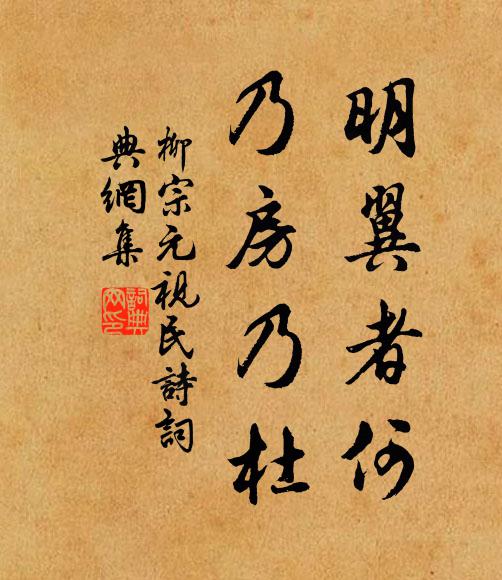 明翼者何
乃房乃杜
柳宗元視民詩詞
典網集
詞典
网印